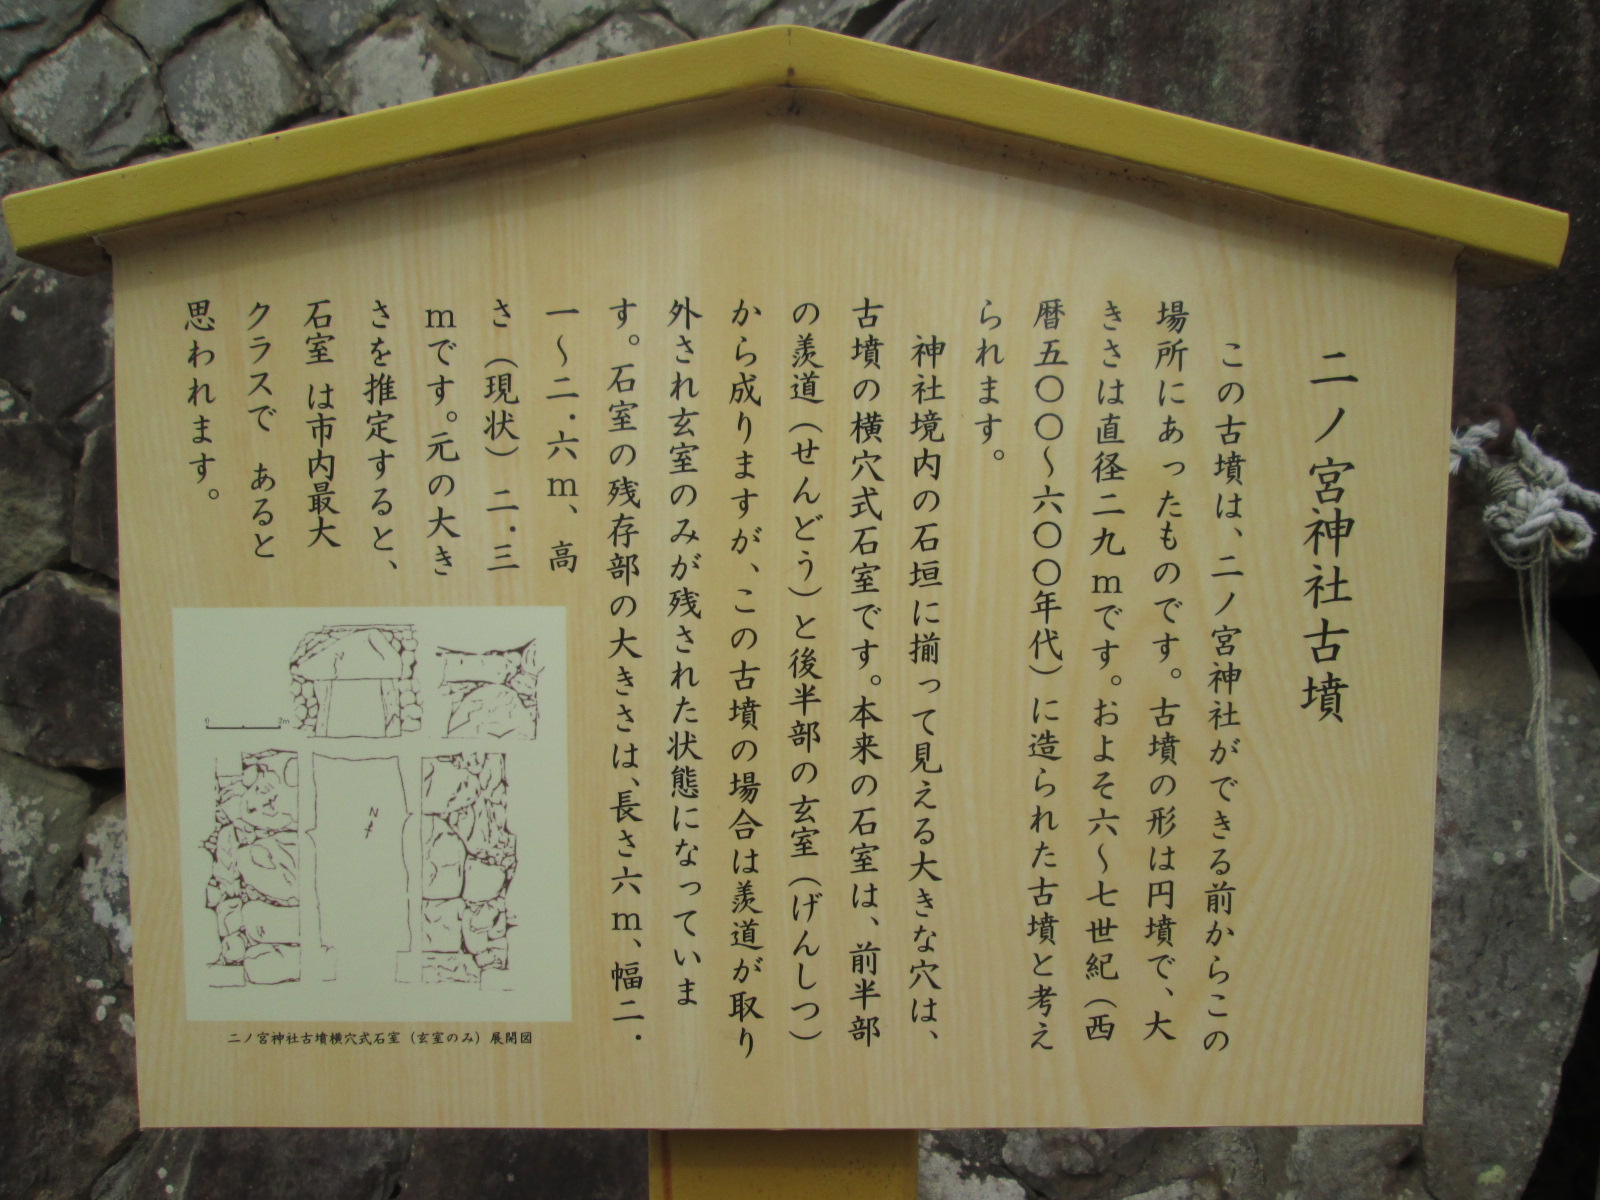 二ノ宮神社古墳
この古墳は、二ノ宮神社ができる前からこの
場所にあったものです。古墳の形は円墳で、大
きさは直径二九mです。およそ六～七世紀（西
暦五〇〇～六〇〇年代）に造られた古墳と考え
られます。
神社境内の石垣に揃って見える大きな穴は、
古墳の横穴式石室です。本来の石室は、前半部
の羨道（せんどう）と後半部の玄室（げんしつ）
から成りますが、この古墳の場合は羨道が取り
外され玄室のみが残された状態になっていま
す。石室の残存部の大きさは、長さ六m、幅二．
一～二．六m、高
さ（現状）二．三
mです。元の大き
さを推定すると、
石室 は市内最大
クラスで あると
思われます。
0 2m
N
二ノ宮神社古墳横穴式石室（玄室のみ）展開図